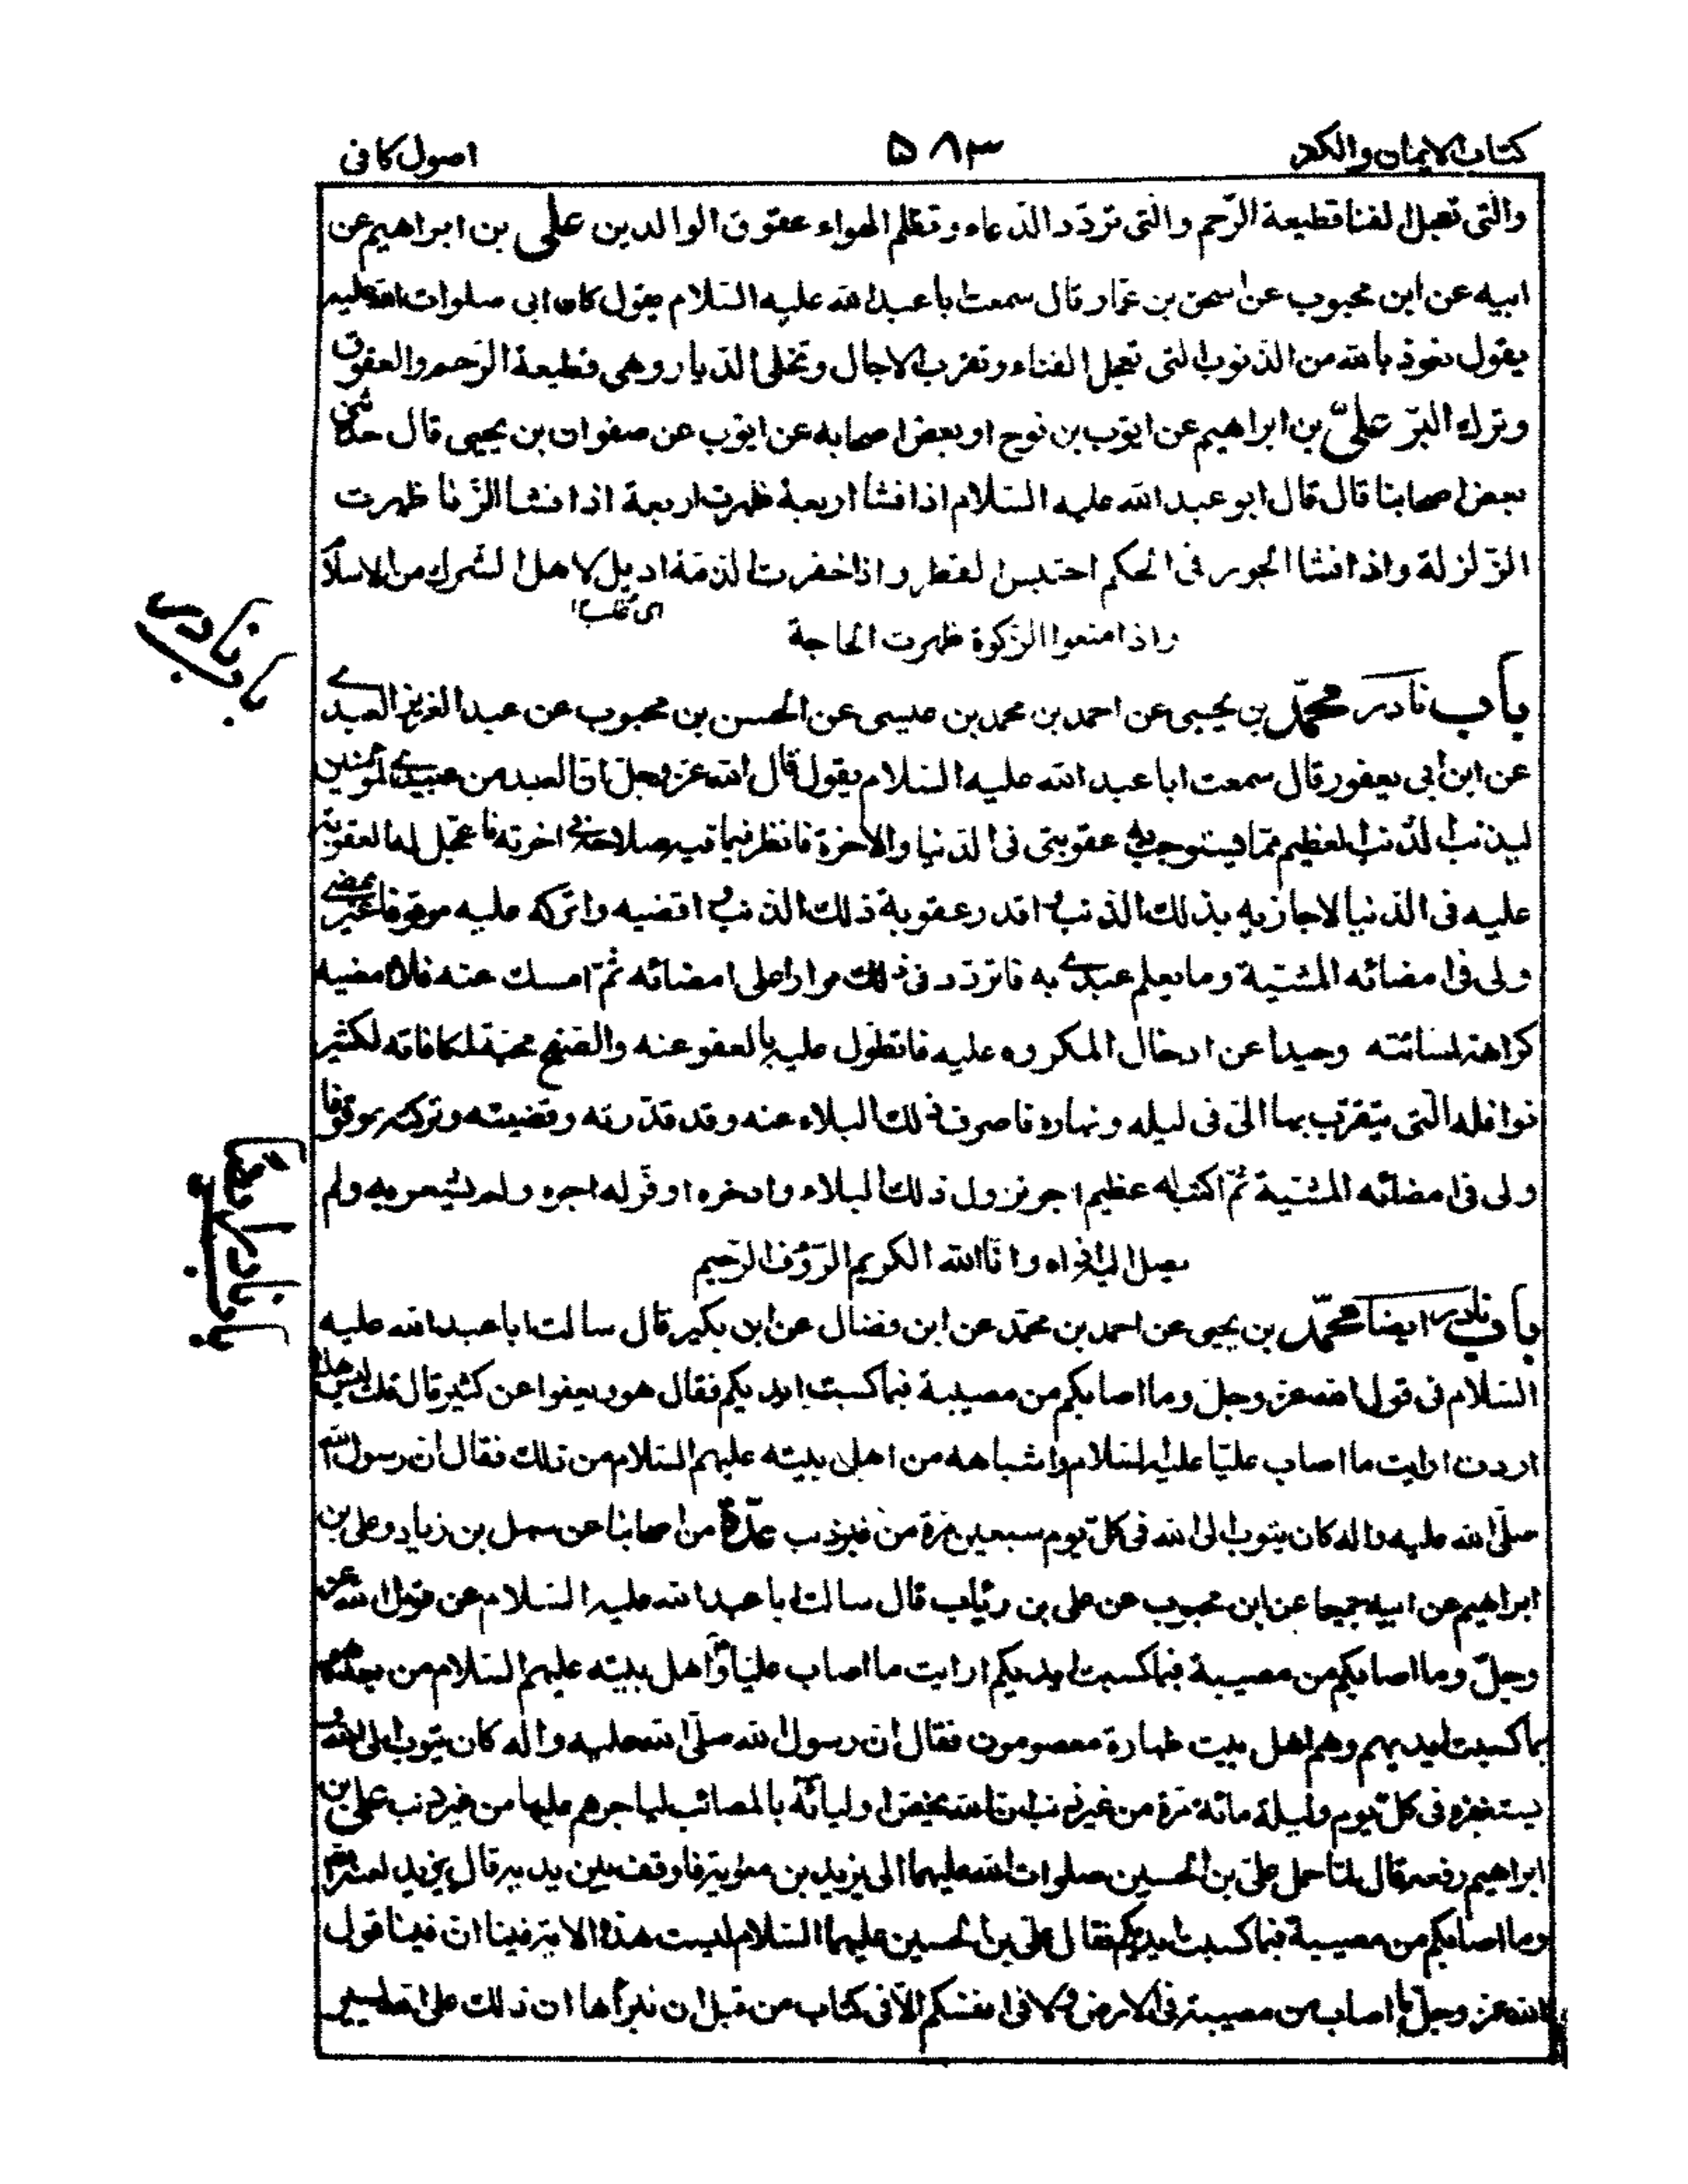 كتاب الايمان والكفر ۵۸۳ اصول كافى
والّتى تعجل الفنا قطيعة الرّحم والّتى تردّ الدّعاء وتظلم الهواء عقوق الوالدين علي بن ابراهيم عن
ابيه عن ابن محبوب عن اسحق بن عمّار قال سمعت ابا عبد الله عليه السّلام يقول كان ابى صلوات الله عليه
يقول نعوذ بالله من الذنوب التى تعجل الفناء وتقرب الاجال وتخلى الدّيار وهى قطيعة الرّحم والعقوق
وترك البرّ علىّ بن ابراهيم عن ايّوب بن نوح او بعض اصحابه عن ايّوب عن صفوان بن يحيى قال حدّثنى
بعض اصحابنا قال قال ابو عبد الله عليه السّلام اذا فشا اربعة ظهرت اربعة اذا فشا الزّنا ظهرت
الزّلزلة واذا فشا الجور فى الحكم احتبس القطر واذا خفرت الذمّة اديل لاهل الشّرك من الاسلام
واذا منعوا الزّكوة ظهرت الحاجة
باب نادر محمّد بن يحيى عن احمد بن محمد بن عيسى عن الحسن بن محبوب عن عبد العزيز العبدى
عن ابن ابى يعفور قال سمعت ابا عبد الله عليه السّلام يقول قال الله عزّ وجلّ انّ العبد من عبيدى المؤمنين
ليذنب الذّنب العظيم ممّا يستوجب به عقوبتى فى الدّنيا والاخرة فانظر فيما فيه صلاحه فى اخرته فاعجّل له العقوبة
عليه فى الدّنيا لاجازيه بذلك الذنب اقدر عقوبة ذلك الذنب واقضيه واتركه عليه موقوفا غير ممضى
ولى فى امضائه المشيّة وما يعلم عبدى به فاتردّد فى ذلك مرارا على امضائه ثمّ امسك عنه فلا امضيه
كراهة لمسائته وحيدا عن ادخال المكروه عليه فاتطوّل عليه بالعفو عنه والصّفح محبّة لمكافاته لكثير
نوافله الّتى يتقرّب بها الىّ فى ليله ونهاره فاصرف ذلك البلاء عنه وقد قدّرته وقضيته وتركته موقوفا
ولى فى امضائه المشيّة ثمّ اكتب له عظيم اجر نزول ذلك البلاء وادخره اوفّر له اجره ولم يشعر به ولم
يصل اليه اذاه وانا الله الكريم الرّؤف الرّحيم
باب نادر ايضا محمّد بن يحيى عن احمد بن محمّد عن ابن فضال عن ابن بكير قال سالت ابا عبد الله عليه
السّلام فى قول الله عز وجلّ وما اصابكم من مصيبة فبما كسبت ايديكم فقال هو ويعفوا عن كثير قال قلت ليس هذا
اردت ارايت ما اصاب عليّا عليه السّلام واشباهه من اهل بيته عليهم السّلام من ذلك فقال ان رسول الله
صلّى الله عليه واله كان يتوب الى الله فى كلّ يوم سبعين مرّة من غير ذنب عدّة من اصحابنا عن سهل بن زياد وعلى بن
ابراهيم عن ابيه جميعا عن ابن محبوب عن على بن رئاب قال سالت ابا عبد الله عليه السّلام عن قول الله عز
وجلّ وما اصابكم من مصيبة فبما كسبت ايديكم ارايت ما اصاب عليّا واهل بيته عليهم السّلام من بعده هو
بما كسبت ايديهم وهم اهل بيت طهارة معصومون فقال ان رسول الله صلّى الله عليه واله كان يتوب الى الله و
يستغفره فى كلّ يوم وليلة مائة مرّة من غير ذنب ان الله يخصّ اوليائه بالمصائب لياجرهم عليها من غير ذنب على بن
ابراهيم رفعه قال لمّا حمل علىّ بن الحسين صلوات الله عليهما الى يزيد بن معوية فاوقف بين يديه قال يزيد لعنه الله
وما اصابكم من مصيبة فبما كسبت ايديكم فقال علىّ بن الحسين عليهما السّلام ليست هذه الاية فينا انّ فينا قول
الله عز وجلّ ما اصاب من مصيبة فى الارض ولا فى انفسكم الّا فى كتاب من قبل ان نبرأها ان ذلك على الله يسير
باب نادر
باب نادر ايضا